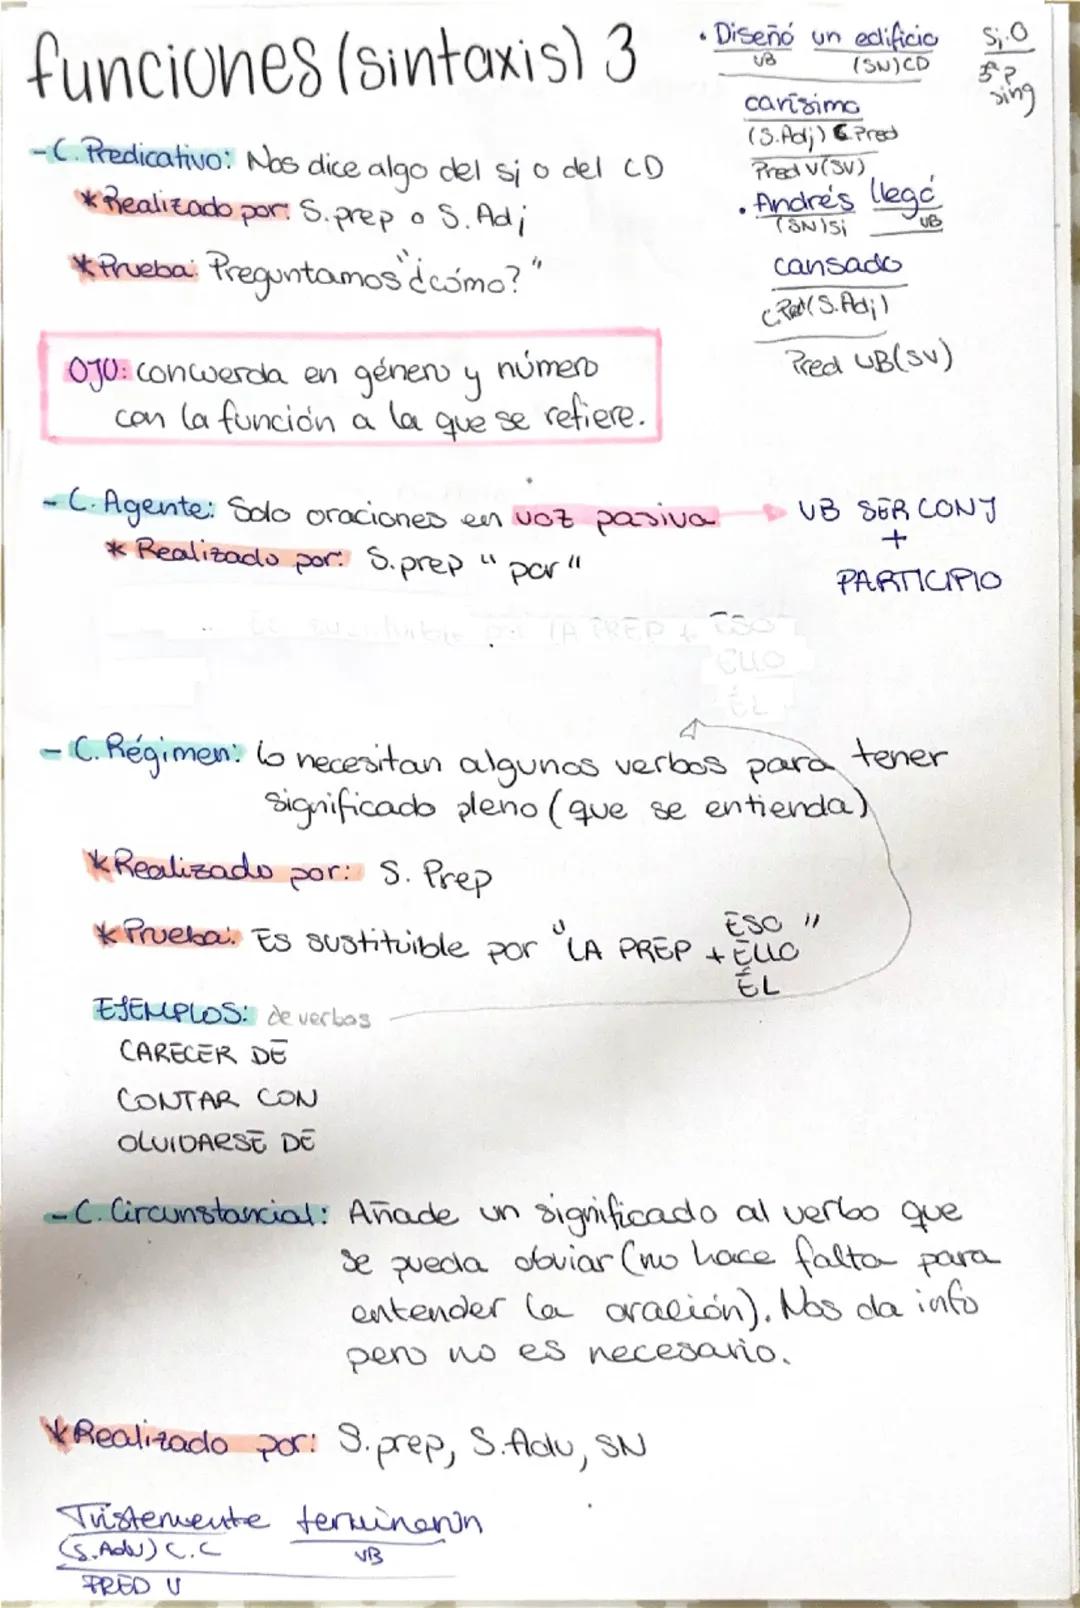 funciones (sintaxis) 3
- C. Predicativo: Nos dice algo del sj o del CD
* Realizado por: S. prep o S. Adj
* Prueba: Preguntamos "¿cómo?"
OJO: concuerda en género y número
con la función a la que se refiere.
• Diseñó un edificio
VB (SN) CD
Sj: O
3ª P
sing
carísimo
(S. Adj) C. Pred
Pred V (SV)
• Andrés llegó
(SN) Sj VB
cansado
C. Pred (S. Adj)
Pred VB (SV)
- C. Agente: Solo oraciones en voz pasiva → VB SER CONJ
+
PARTICIPIO
* Realizado por: S. prep "por"
- C. Régimen: lo necesitan algunos verbos para tener
significado pleno (que se entienda)
* Realizado por: S. Prep
* Prueba: Es sustituible por "LA PREP + ESO"
ELLO
ÉL
EJEMPLOS: de verbos
CARECER DE
CONTAR CON
OLVIDARSE DE
- C. Circunstancial: Añade un significado al verbo que
se pueda obviar (no hace falta para
entender la oración). Nos da info
pero no es necesario.
* Realizado por: S. prep, S. Adv, SN
Tristemente terminaron
(S. Adv) C.C VB
PRED V